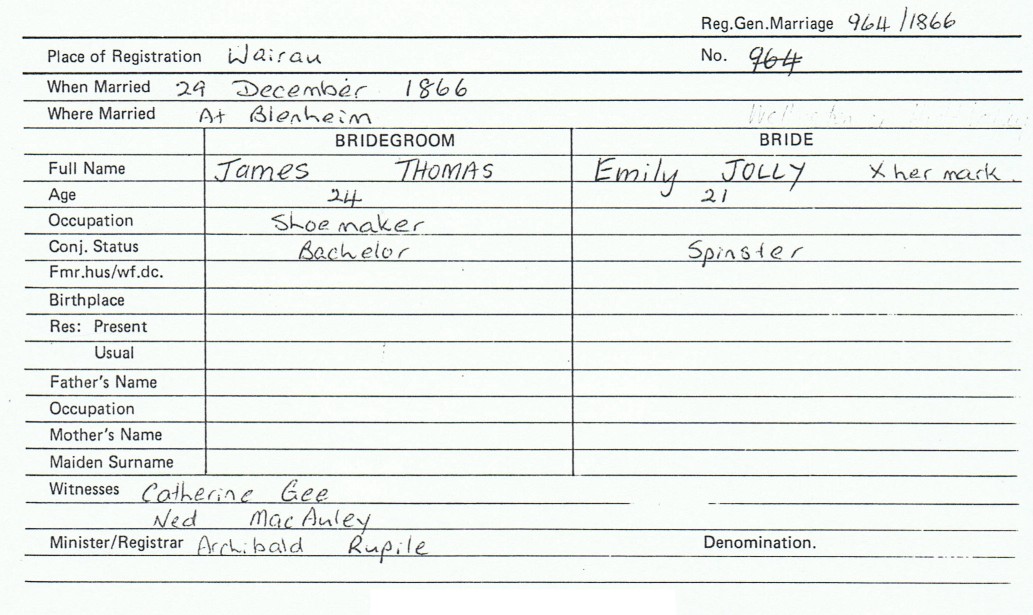 Reg.Gen.Marriage 964/1866
Place of Registration Wairau No. 964
When Married 29 December 1866
Where Married At Blenheim
BRIDEGROOM BRIDE
Full Name James THOMAS Emily JOLLY X her mark.
Age 24 21
Occupation Shoemaker
Conj. Status Bachelor Spinster
Fmr.hus/wf.dc.
Birthplace
Res: Present
Usual
Father's Name
Occupation
Mother's Name
Maiden Surname
Witnesses Catherine Gee
Ned MacAuley
Minister/Registrar Archibald Rupile Denomination.